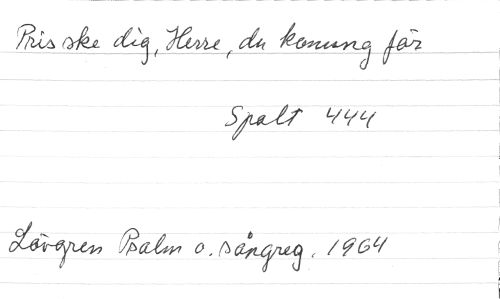 Pris ske dig, Herre, du konung för
Spalt 444
Lövgren Psalm o. sångreg. 1964